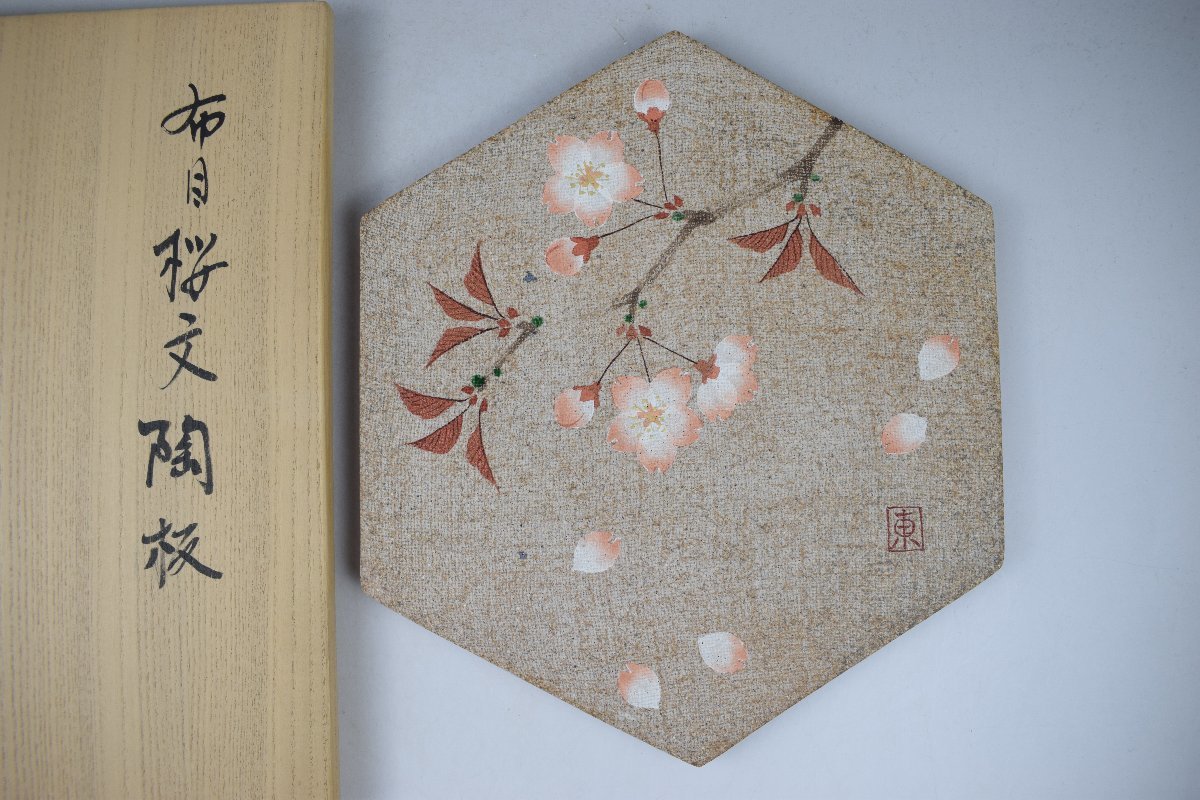 布目桜文陶板
東